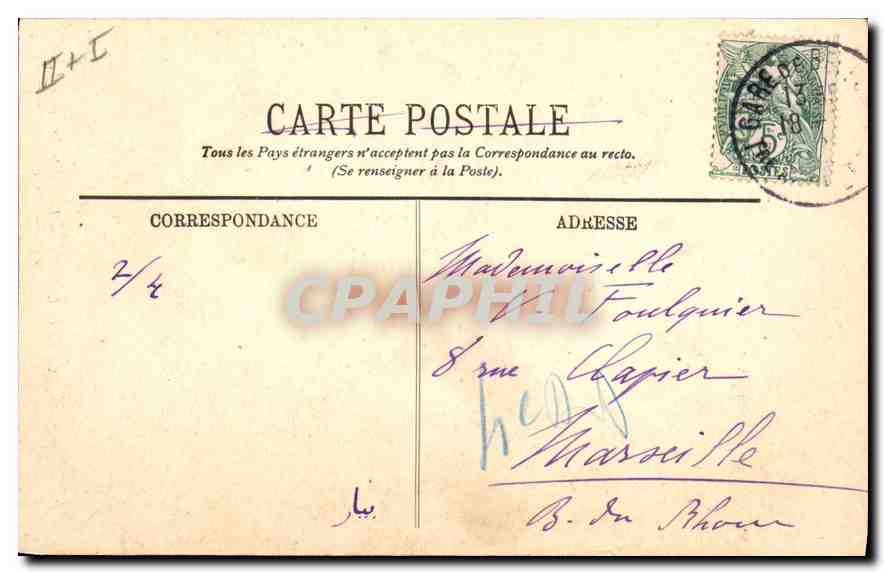 II + I
CARTE POSTALE
Tous les Pays étrangers n'acceptent pas la Correspondance au recto.
(Se renseigner à la Poste).
GARE
13
18
5
POSTES
CORRESPONDANCE
ADRESSE
2/4
Mademoiselle
V. Foulquier
8 rue Clapier
Marseille
B. du Rhone
CPAPHIL